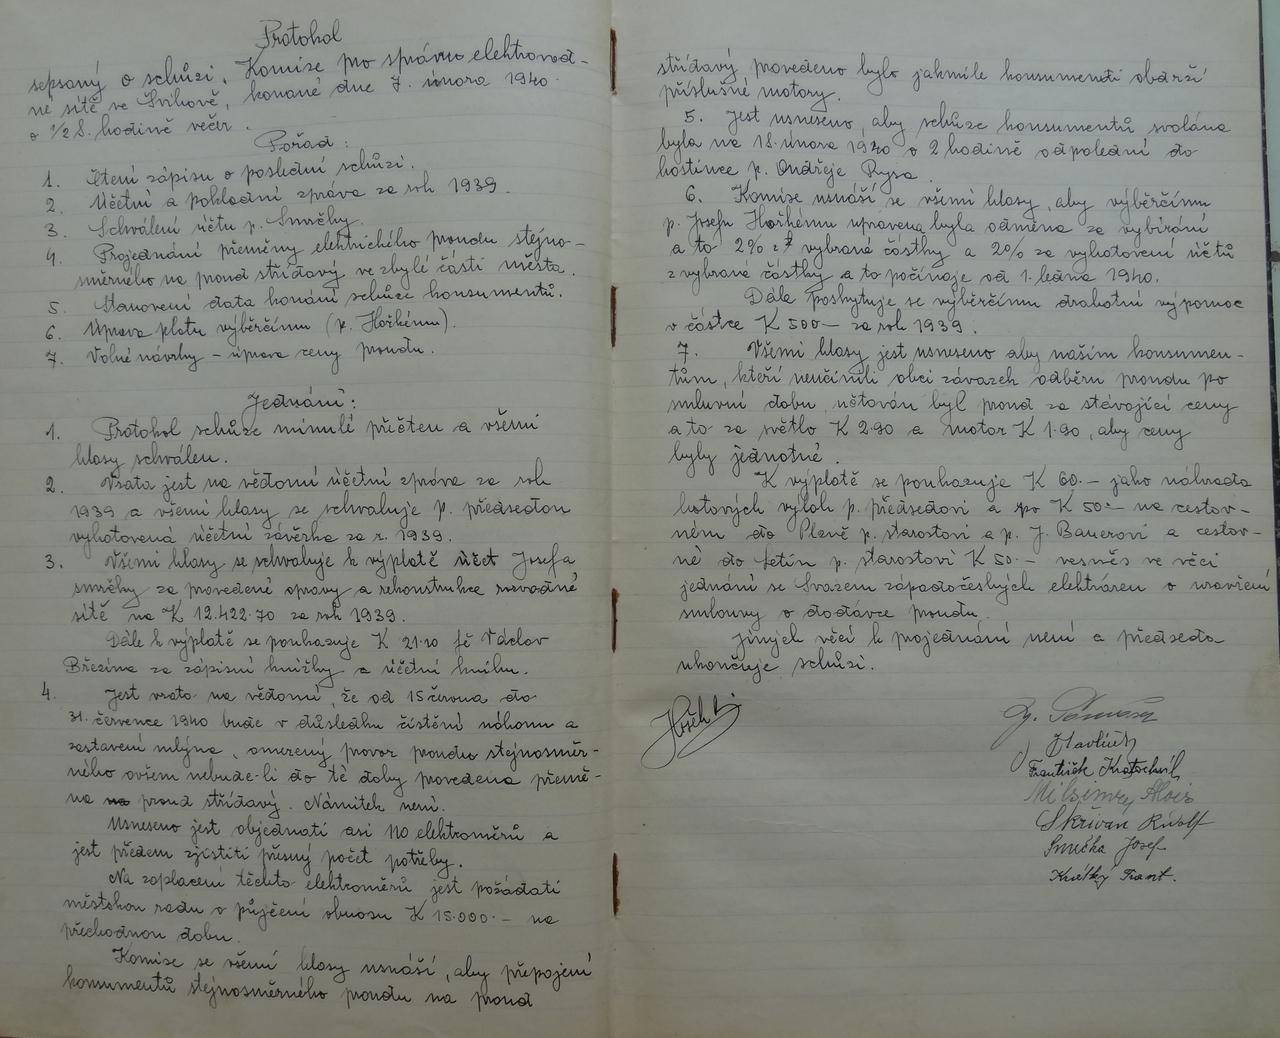 Protokol
sepsaný o schůzi Komise pro správu elektrovod-
né sítě ve Švihově, konané dne 7. února 1940
o 1/2 8. hodině večer.
Pořad:
1. Čtení zápisu o poslední schůzi.
2. Účetní a pokladní zpráva za rok 1939.
3. Schválení účtu p. Smrčky.
4. Projednání přeměny elektrického proudu stejno-
směrného na proud střídavý ve zbylé části města.
5. Stanovení data konání schůze konsumentů.
6. Úprava platu výběrčímu (p. Hořkému).
7. Volné návrhy – úprava ceny proudu.
Jednání:
1. Protokol schůze minulé přečten a všemi
hlasy schválen.
2. Vzata jest na vědomí účetní zpráva za rok
1939 a všemi hlasy se schvaluje p. předsedou
vyhotovená účetní závěrka za r. 1939.
3. Všemi hlasy se schvaluje k výplatě účet Josefa
Smrčky za provedené opravy a rekonstrukce rozvodné
sítě na K 12.422.70 za rok 1939.
Dále k výplatě se poukazuje K 21.10 fě Václav
Březina za zápisní knížky a účetní knihu.
4. Jest vzato na vědomí, že od 15 června do
31. července 1940 bude v důsledku čištění náhonu a
zastavení mlýna, omezený provoz proudu stejnosměr-
ného ovšem nebude-li do té doby provedena přemě-
na proud střídavý. Námitek není.
Usneseno jest objednati asi 110 elektroměrů a
jest předem zjistiti přesný počet potřeby.
Na zaplacení těchto elektroměrů jest požádati
městskou radu o půjčení obnosu K 15.000.– na
přechodnou dobu.
Komise se všemi hlasy usnáší, aby přepojení
konsumentů stejnosměrného proudu na proud
střídavý provedeno bylo jakmile konsumenti obdrží
příslušné motory.
5. Jest usneseno, aby schůze konsumentů svolána
byla na 18. února 1940 o 2 hodině odpolední do
hostince p. Ondřeje Rysa.
6. Komise usnáší se všemi hlasy, aby výběrčímu
p. Josefu Hořkému upravena byla odměna za vybírání
a to 2% z vybrané částky a 2% za vyhotovení účtů
z vybrané částky a to počínaje od 1. ledna 1940.
Dále poskytuje se výběrčímu drahotní výpomoc
v částce K 500– za rok 1939.
7. Všemi hlasy jest usneseno aby našim konsumen-
tům, kteří neučinili obci závazek odběru proudu po
smluvní dobu, účtován byl proud za stávající ceny
a to za světlo K 2.90 a motor K 1.90, aby ceny
byly jednotné.
K výplatě se poukazuje K 60.– jako náhrada
hotových výloh p. předsedovi a po K 50.– na cestov-
ném do Plzně p. starostovi a p. J. Bauerovi a cestov-
né do Letin p. starostovi K 50.– vesměs ve věci
jednání se Svazem západočeských elektráren o uzavření
smlouvy o dodávce proudu.
Jiných věcí k projednání není a předseda
ukončuje schůzi.
Havlíček
František Kratochvíl
Alois
Skřivan Rudolf
Smrčka Josef
Krátký Frant.